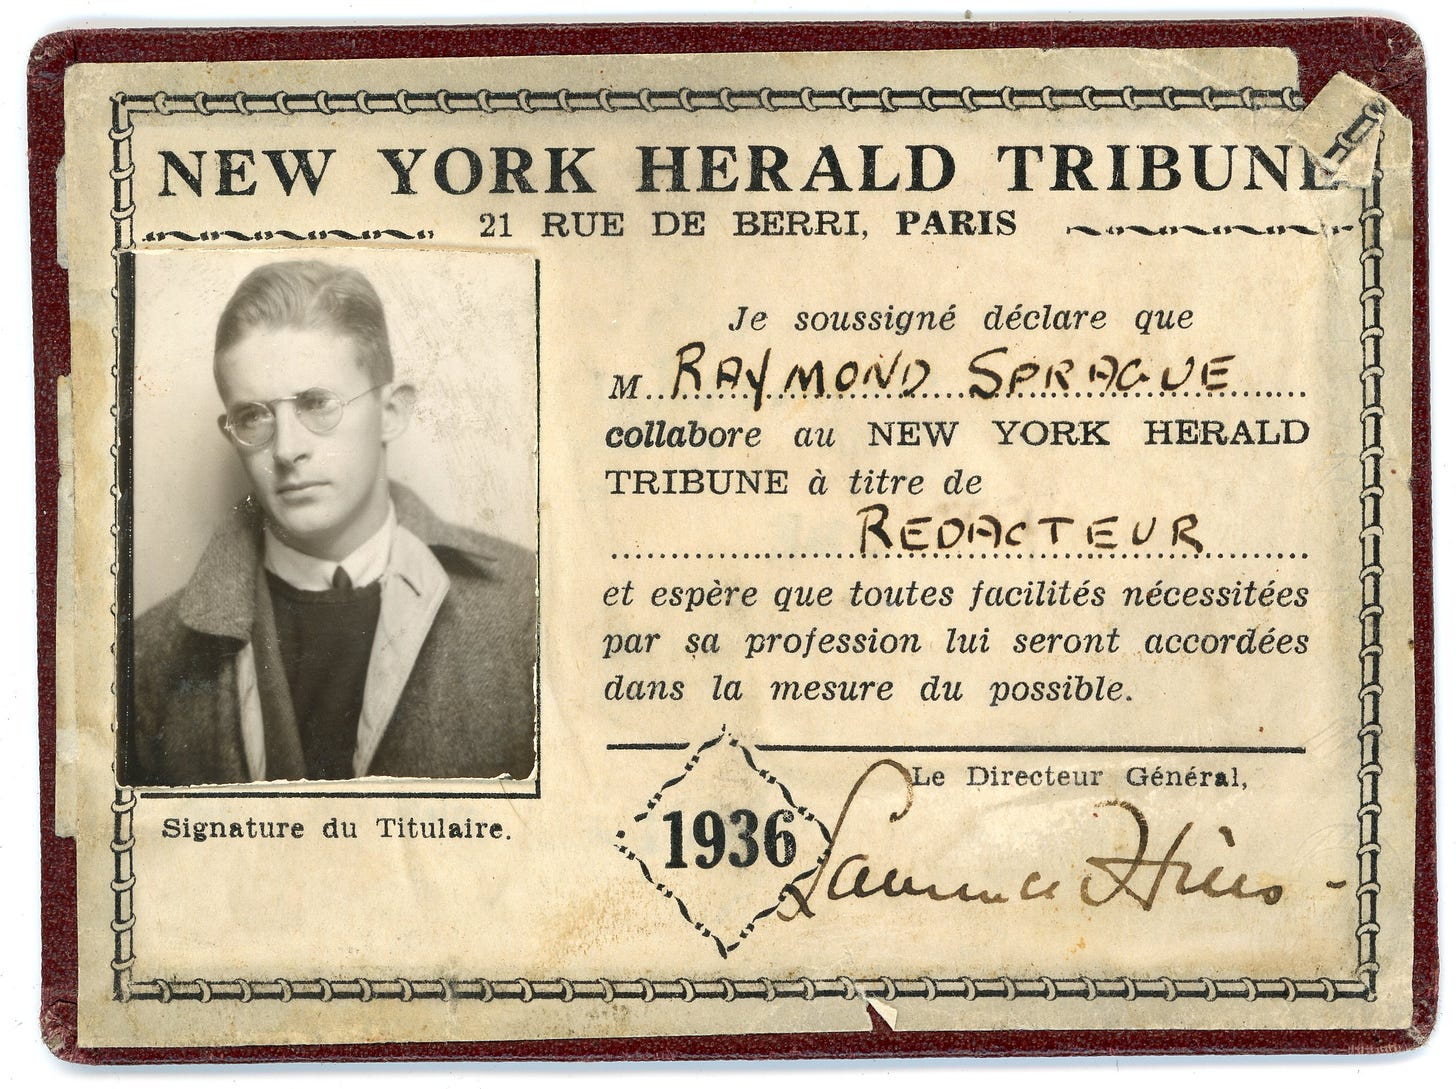 NEW YORK HERALD TRIBUNE
21 RUE DE BERRI, PARIS
Je soussigné déclare que
M. RAYMOND SPRAGUE
collabore au NEW YORK HERALD
TRIBUNE à titre de
REDACTEUR
et espère que toutes facilités nécessitées
par sa profession lui seront accordées
dans la mesure du possible.
Le Directeur Général,
1936
Laurence Hills
Signature du Titulaire.